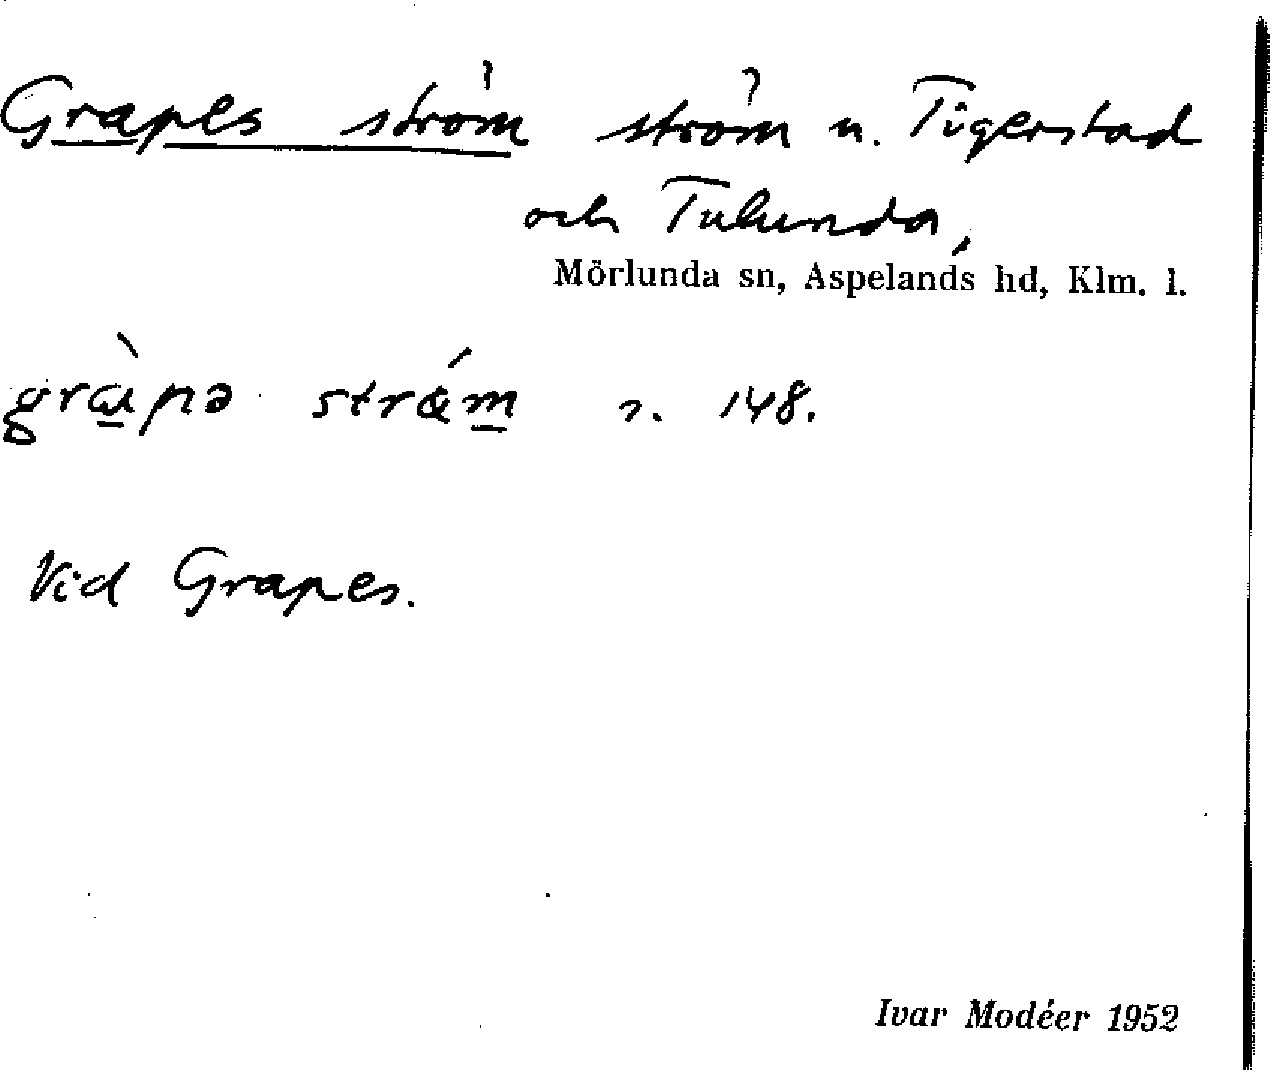 Grapes ström ström n. Tigerstad
och Tulunda,
Mörlunda sn, Aspelands hd, Klm. l.
148.
Vid Grapes.
Ivar Modéer 1952